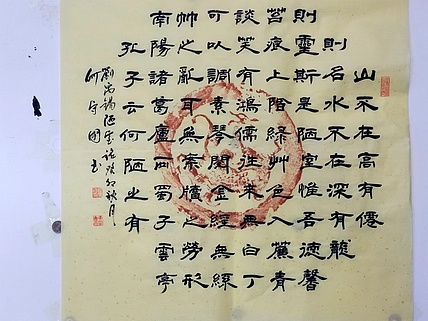 山不在高有僊
則名水不在深有龍
則靈斯是陋室惟吾德馨
苔痕上階綠艸色入簾青
談笑有鴻儒往來無白丁
可以調素琴閱金經無絲
竹之亂耳無案牘之勞形
南陽諸葛廬西蜀子雲亭
孔子云何陋之有
劉禹錫陋室銘癸卯秋月
何守國书